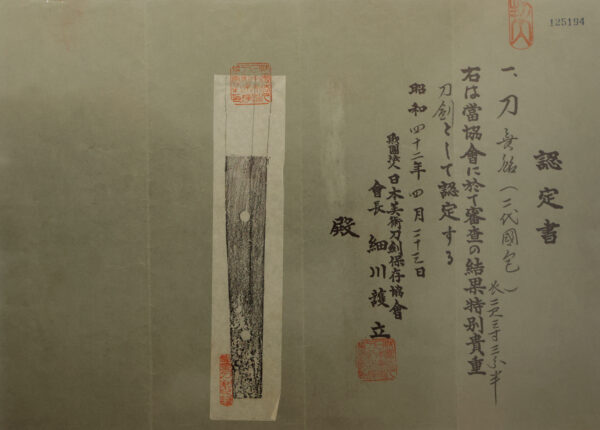 125194
認定書
一、刀 無銘(二代國包)
長二尺三寸三分半
右は當協會に於て審査の結果特別貴重
刀剣として認定する
昭和四十二年四月二十三日
財團法人日本美術刀剣保存協會
會長 細川護立
殿